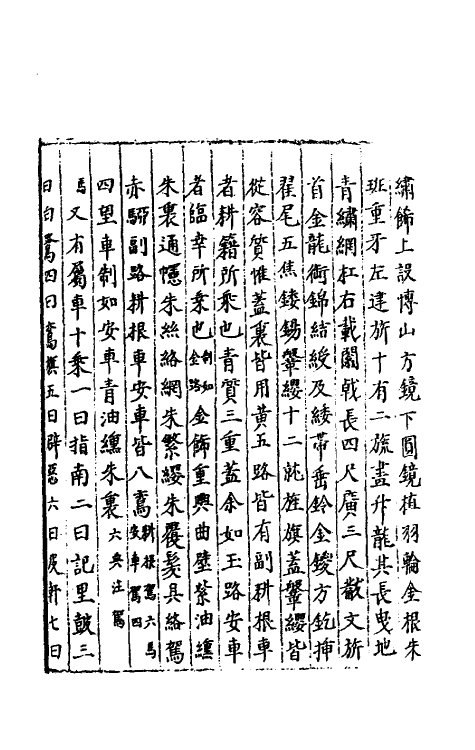 繡飾上設博山方鏡下圓鏡植羽輪金根朱
班重牙左建旂十有二旒畫升龍其長曳地
青繡網杠右載闟戟長四尺廣三尺黻文旂
首金龍銜錦結綬及綏帶垂鈴金鍐方釳揷
翟尾五焦鏤錫鞶纓十二就旌旗蓋鞶纓皆
從容質惟蓋裏皆用黃五路皆有副耕根車
者耕籍所乘也青質三重蓋余如玉路安車
者臨幸所乘也制如金路金飾重輿曲壁紫油纁
朱裏通幰朱絲絡網朱繁纓朱覆髮具絡駕
赤駵副路耕根車安車皆八鸞耕根駕六馬安車駕四
四望車制如安車青油纁朱裏六典注駕
馬又有屬車十乘一曰指南二曰記里鼓三
曰白鷺四曰鸞旗五曰辟惡六曰皮軒七曰